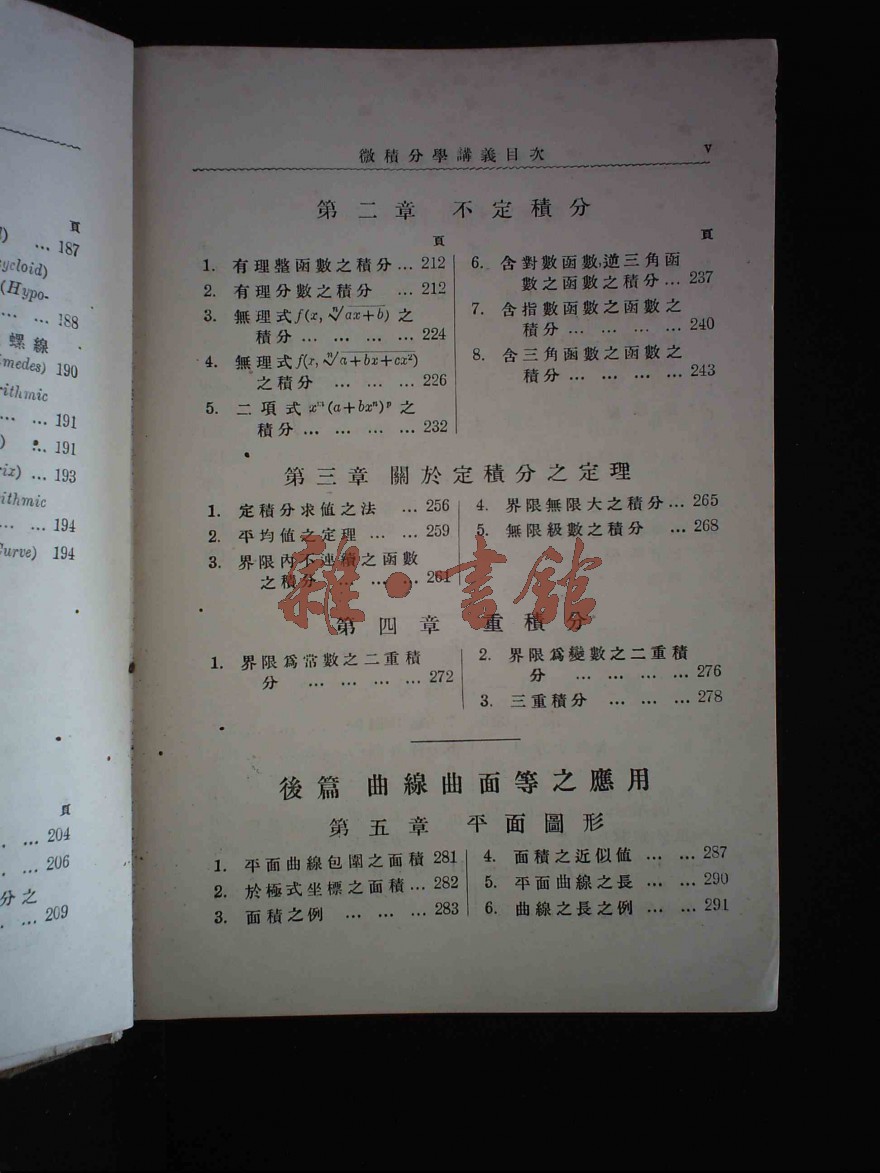 頁
... 187
cycloid)
(Hypo-
... ... 188
螺線
imedes) 190
rithmic
... ... 191
) ... 191
rix) ... 193
rithmic
... ... 194
Curve) 194
頁
... ... 204
... ... 206
分之
... ... 209
微積分學講義目次
v
第二章 不定積分
頁
1. 有理整函數之積分 ... 212
2. 有理分數之積分 ... 212
3. 無理式 f(x, ⁿ√ax+b) 之
積分 ... ... ... ... 224
4. 無理式 f(x, ⁿ√a+bx+cx²)
之積分 ... ... ... 226
5. 二項式 xᵐ(a+bxⁿ)ᵖ 之
積分 ... ... ... ... 232
頁
6. 含對數函數,逆三角函
數之函數之積分 ... 237
7. 含指數函數之函數之
積分 ... ... ... ... 240
8. 含三角函數之函數之
積分 ... ... ... ... 243
第三章 關於定積分之定理
1. 定積分求値之法 ... 256
2. 平均値之定理 ... ... 259
3. 界限內不連續之函數
之積分 ... ... ... 261
4. 界限無限大之積分 ... 265
5. 無限級數之積分 ... 268
雜·書館
第四章 重積分
1. 界限爲常數之二重積
分 ... ... ... ... 272
2. 界限爲變數之二重積
分 ... ... ... ... 276
3. 三重積分 ... ... ... 278
後篇 曲線曲面等之應用
第五章 平面圖形
1. 平面曲線包圍之面積 281
2. 於極式坐標之面積 ... 282
3. 面積之例 ... ... ... 283
4. 面積之近似値 ... ... 287
5. 平面曲線之長 ... ... 290
6. 曲線之長之例 ... ... 291